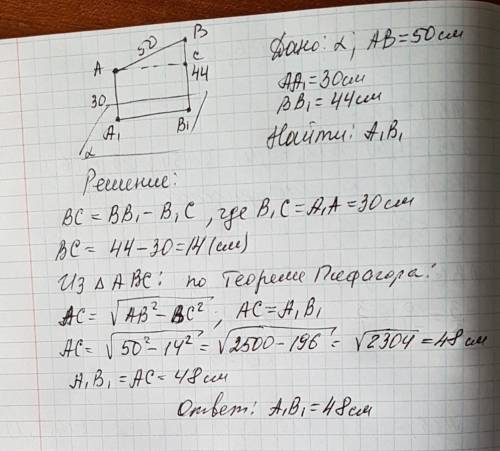 50
B
A
C
44
30
A₁
B₁
α
Дано: α; AB = 50 см
AA₁ = 30 см
BB₁ = 44 см
Найти: A₁B₁
Решение:
BC = BB₁ - B₁C, где B₁C = A₁A = 30 см
BC = 44 - 30 = 14 (см)
Из △ABC: по Теореме Пифагора:
AC = √(AB² - BC²), AC = A₁B₁
AC = √(50² - 14²) = √(2500 - 196) = √2304 = 48 см
A₁B₁ = AC = 48 см
Ответ: A₁B₁ = 48 см